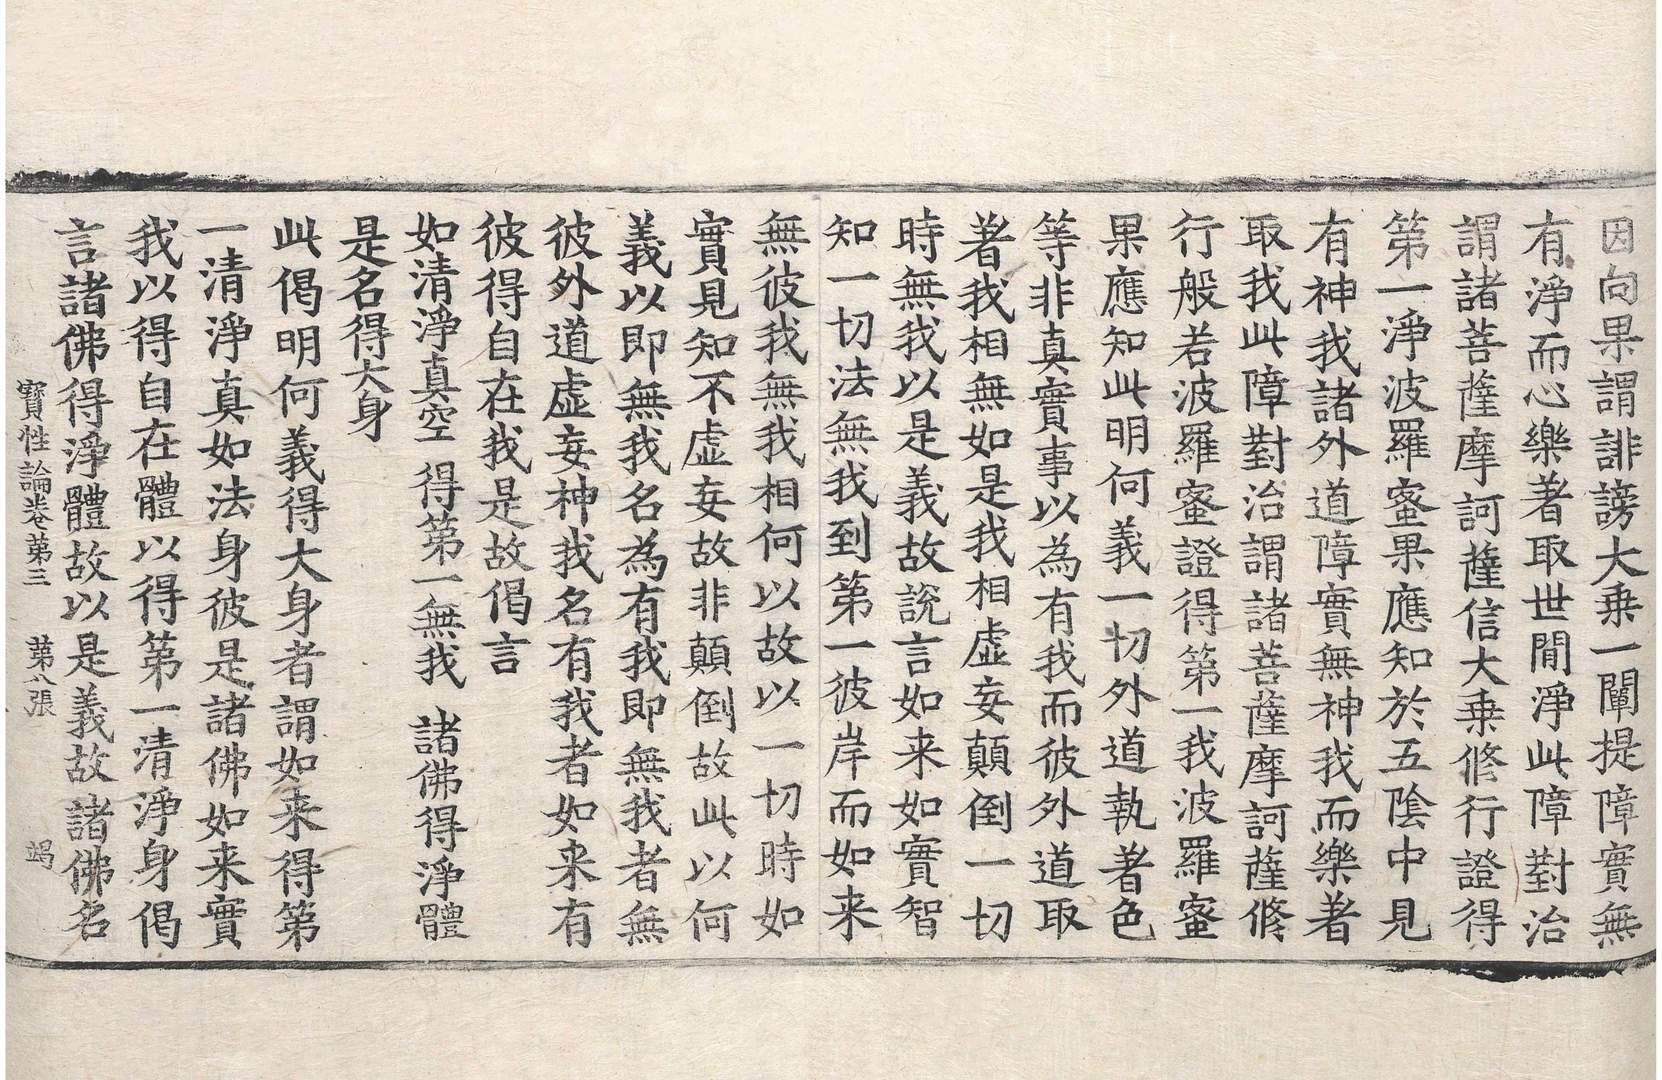 因向果謂誹謗大乗一闡提障實無
有淨而心樂著取世間淨此障對治
謂諸菩薩摩訶薩信大乗修行證得
第一淨波羅蜜果應知於五陰中見
有神我諸外道障實無神我而樂著
取我此障對治謂諸菩薩摩訶薩修
行般若波羅蜜證得第一我波羅蜜
果應知此明何義一切外道執著色
等非真實事以為有我而彼外道取
著我相無如是我相虛妄顛倒一切
時無我以是義故說言如来如實智
知一切法無我到第一彼岸而如来
無彼我無我相何以故以一切時如
實見知不虛妄故非顛倒故此以何
義以即無我名為有我即無我者無
彼外道虛妄神我名有我者如来有
彼得自在我是故偈言
如清淨真空 得第一無我 諸佛得淨體
是名得大身
此偈明何義得大身者謂如来得第
一清淨真如法身彼是諸佛如来實
我以得自在體以得第一清淨身偈
言諸佛得淨體故以是義故諸佛名
寶性論卷第三 第八張 竭